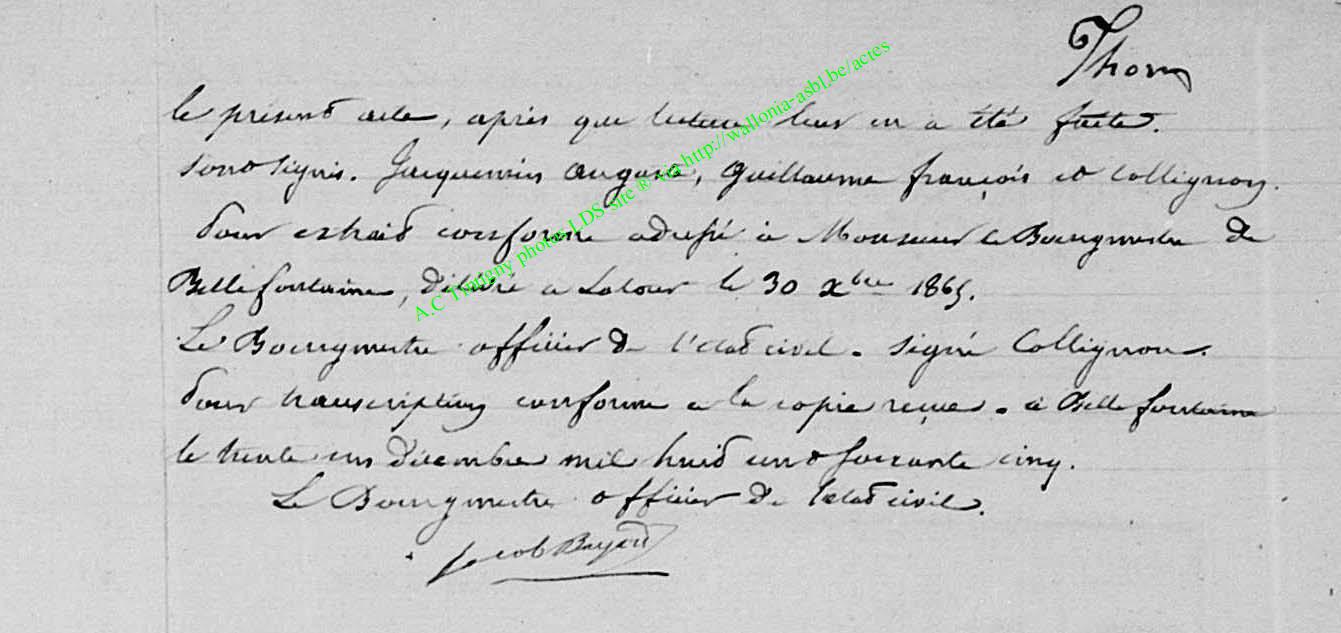 Thom
le présent acte, après que lecture leur en a été faite.
Sont signés. Jacquemin Auguste, Guillaume françois et Collignon.
Pour extrait conforme adressé à Monsieur le Bourgmestre de
Bellefontaine, délivré a Latour le 30 xbre 1865.
Le Bourgmestre officier de l'etat civil. signé Collignon.
Pour transcription conforme a la copie reçue. à Bellefontaine
le trente un décembre mil huit cent soixante cinq.
Le Bourgmestre officier de l'etat civil.
Jacob Bayard
A.C Tintigny photos LDS site ® via http://wallonia-asbl.be/actes